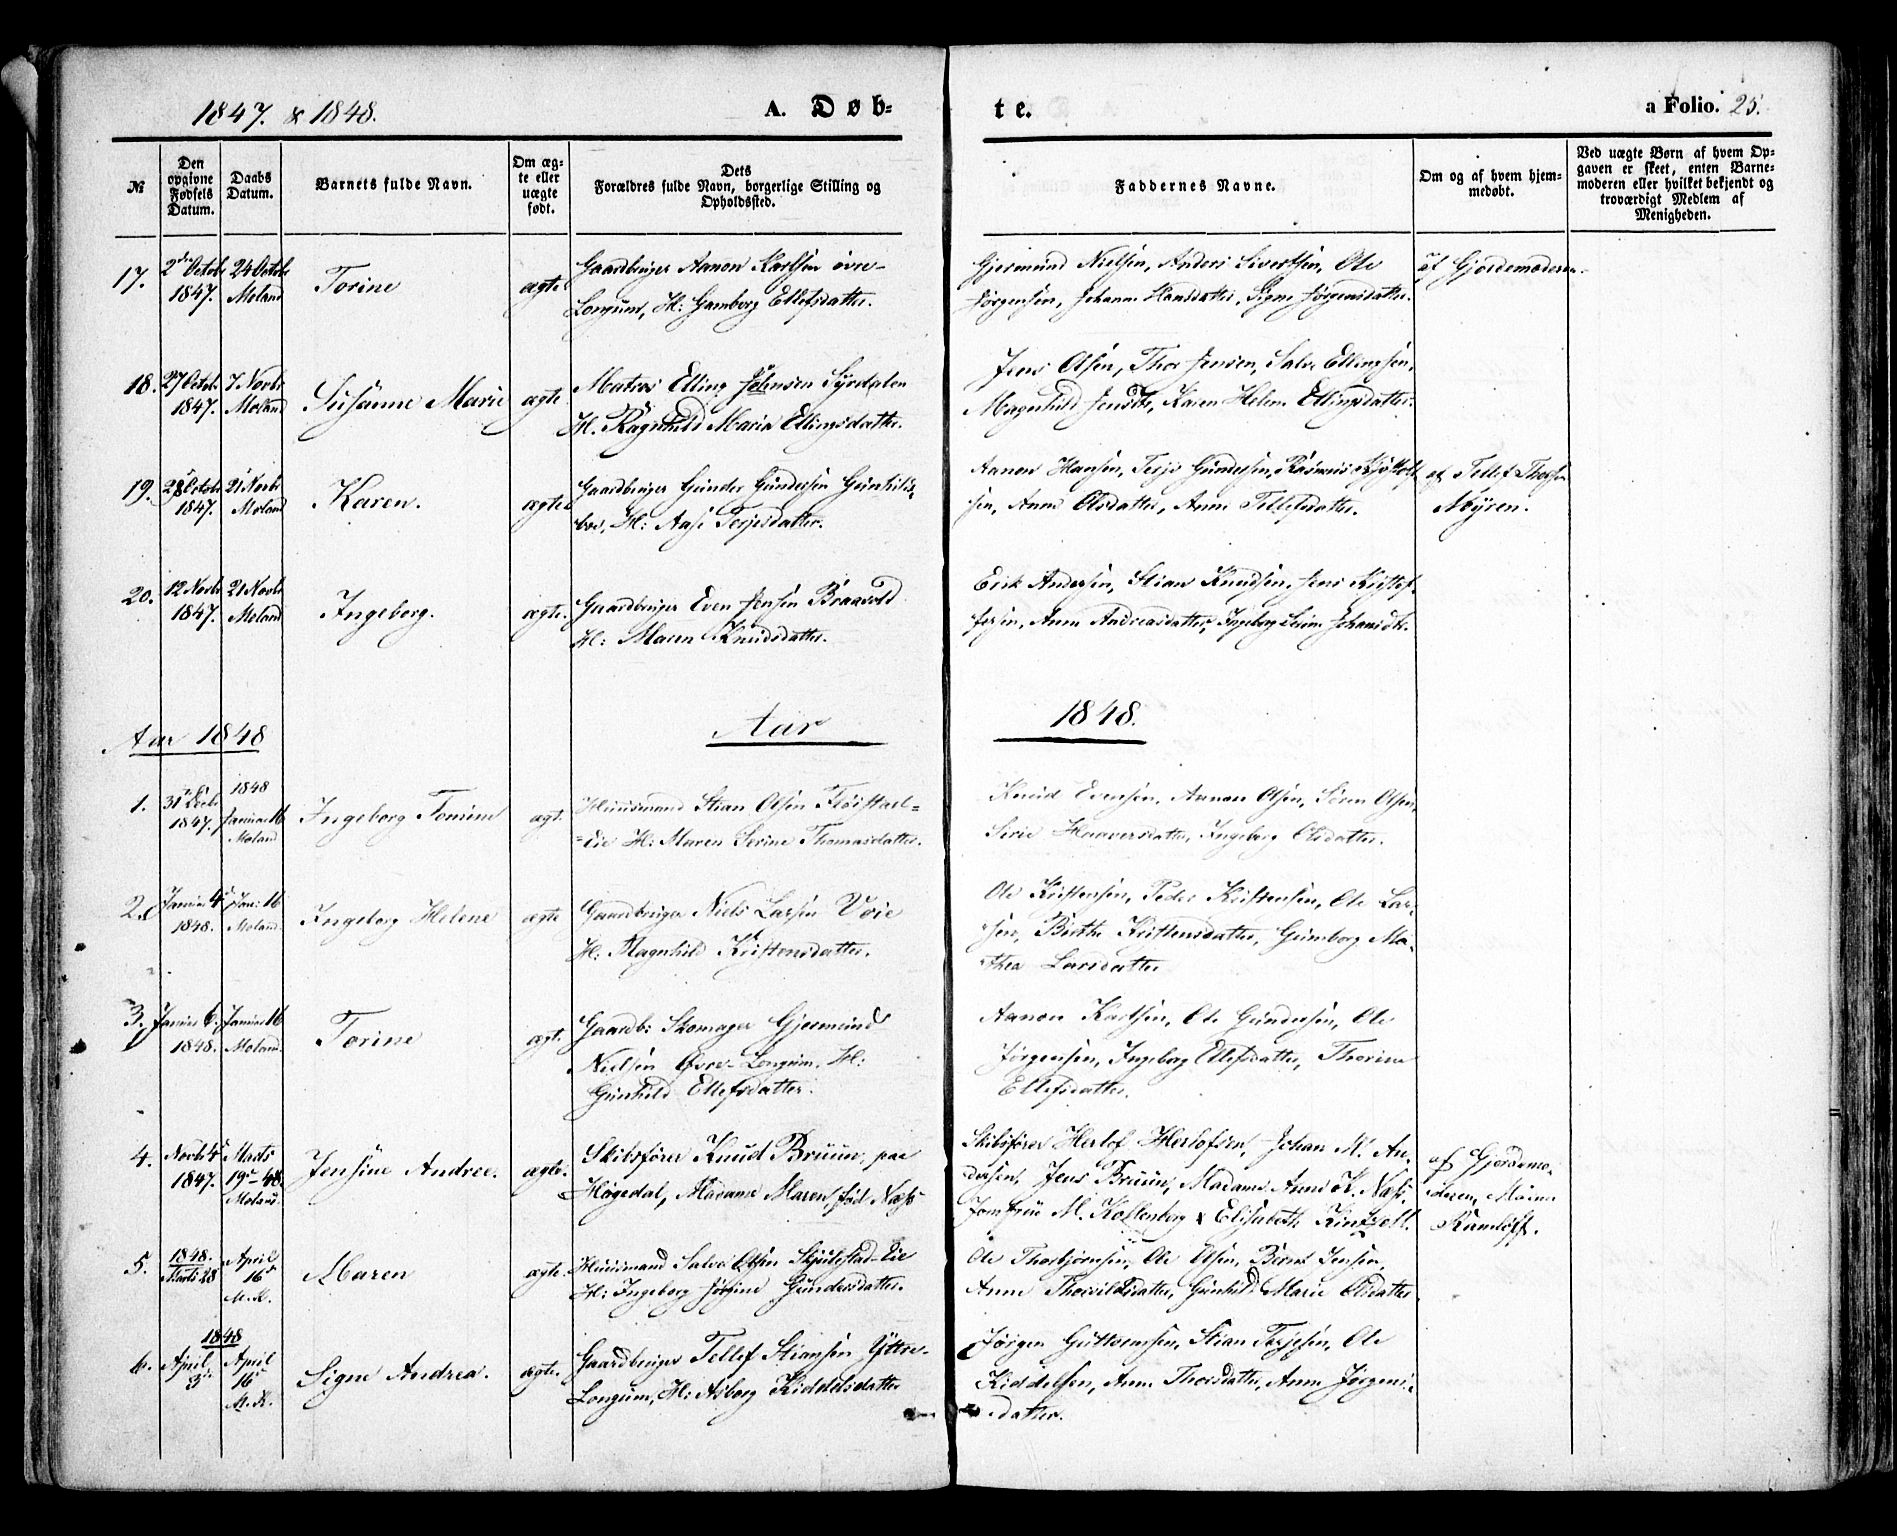 1847. & 1848.
A. Døb-
te.
a Folio. 25.
№
Den opgivne Fødsels Datum.
Daabs Datum.
Barnets fulde Navn.
Om æg-
te eller
uægte
født.
Dets
Forældres fulde Navn, borgerlige Stilling og
Opholdssted.
Faddernes Navne.
Om og af hvem hjem-
medøbt.
Ved uægte Børn af hvem Op-
gaven er skeet, enten Barne-
moderen eller hvilket bekjendt og
troværdigt Medlem af
Menigheden.
17.
2den Octobr
1847.
24 Octobr
Moland
Torine
ægte
Gaardbruger Aanon Karlsen øvre-
Longum, H: Gumborg Ellefsdatter.
Gjermund Nielsen, Anders Sivertsen, Ole
Jørgensen, Johanne Hansdatter, Signe Jørgensdatter.
af Gjordemoderen.
18.
27 Octobr
1847.
7 Novbr
Moland
Susanne Marie
ægte
Matros Elling Jensen Syrdalen
H. Ragnhild Maria Ellingsdatter.
Jens Olsen, Thor Jensen, Salve Ellingsen,
Magnhild Jensdtr, Karen Helene Ellingsdatter.
19.
28 Octobr
1847.
21 Novbr
Moland
Karen.
ægte
Gaardbruger Gunder Gundersen Gunhilds-
boe, H: Aase Terjesdatter.
Aanon Hansen, Terje Gundersen, Rasmus
sen, Anne Olsdatter, Anne Tellefsdatter.
af Tellef Thorsen
Myren.
20.
12 Novbr
1847.
21 Novbr
Moland
Ingeborg.
ægte.
Gaardbruger Even Jensen Braavold
H: Maren Knudsdatter.
Erik Andersen, Stian Knudsen, Jens Kristof-
fersen, Anne Andreasdatter, Ingeborg Johansdtr.
Aar 1848
Aar
1848.
1.
31te Decbr
1847.
1848
Januar 16
Moland
Ingeborg Tomine
ægt.
Huusmand Stian Olsen Fløistad-
-Eie H: Maren Serine Thomasdatter.
Knud Evensen, Aanon Olsen, Søren Olsen,
Sirie Haaversdatter, Ingeborg Olsdatter.
2.
Januar 4
1848.
Jan: 16
Moland
Ingeborg Helene
ægte
Gaardbruger Niels Larsen Voie
H: Magnhild Kristensdatter.
Ole Kristensen, Peder Kristensen, Ole Lar-
sen, Birthe Kristensdatter, Gumborg Ma-
thea Larsdatter
3.
Januar 6.
1848.
Januar 16
Moland.
Torine
ægt.
Gaardb: Skomager Gjermund
Nielsen Øvre-Longum, H:
Gunhild Ellefsdatter.
Aanon Karlsen, Ole Gundersen, Ole
Jørgensen, Ingeborg Ellefsdatter, Thorine
Ellefsdatter.
4.
Novbr 4
1847.
Marts
19 - 48.
Moland
Jensine Andree.
ægte.
Skibsfører Knud Bruun, paa
Høgedal, Madame Maren, født Næss
Skibsfører Herlof Herlofsen, Johan M. An-
dersen, Jens Bruun, Madame Anne K. Næss,
Jomfrue M. Kollenberg & Elisabeth
af Gjordemo-
deren, Maren
5.
1848.
Marts 28
April
16
M. K.
Maren
ægte.
Huusmand Salve Olsen Skjulestad-Eie
H: Ingeborg Jørgine Gundersdatter.
Ole Thorbjørnsen, Ole Olsen, Bernt Jensen,
Anne Thorvildsdatter, Gunhild Marie Olsdatter
6.
1848
April
3
April
16
M. K.
Signe Andrea.
ægte.
Gaardbruger Tellef Stiansen Yttre-
Longum, H: Asborg Kiddelsdatter
Jørgen Guttormsen, Stian Terjesen, Ole
Kiddelsen, Anne Thorsdatter, Anne Jørgens-
datter.